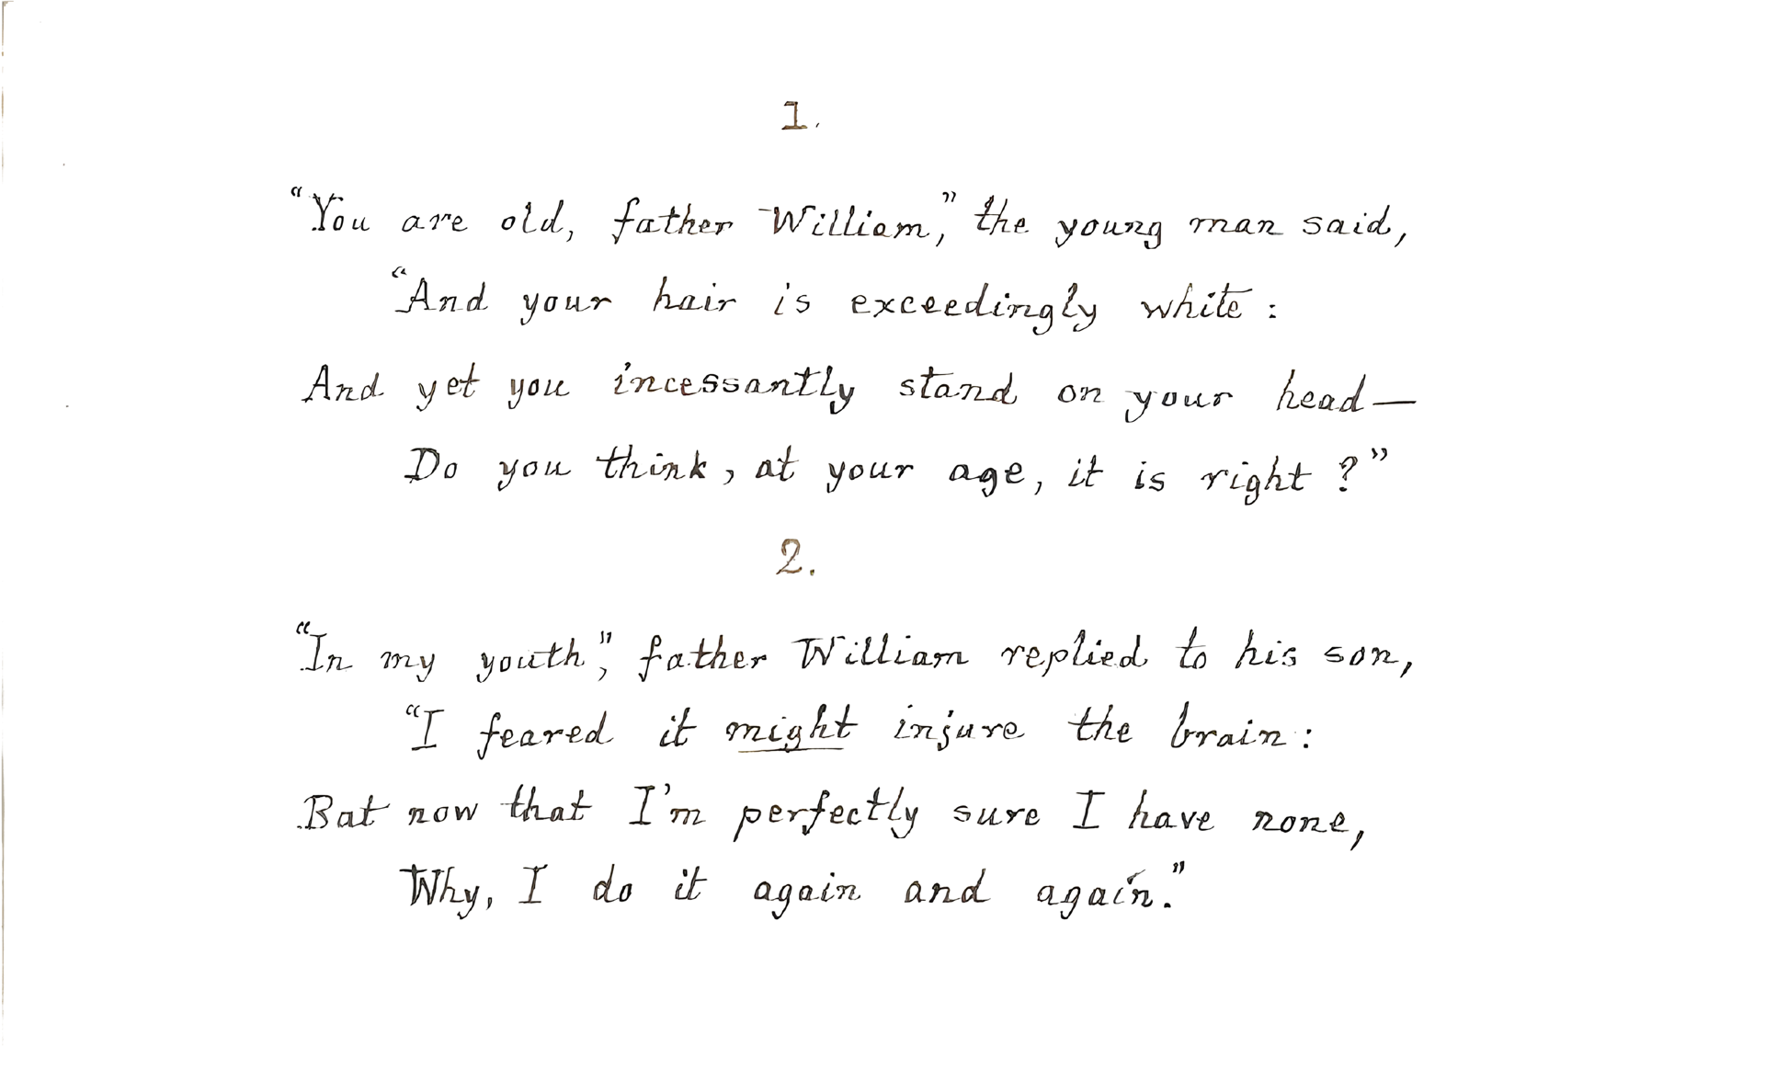 1.
"You are old, father William," the young man said,
"And your hair is exceedingly white:
And yet you incessantly stand on your head—
Do you think, at your age, it is right?"
2.
"In my youth," father William replied to his son,
"I feared it might injure the brain:
But now that I'm perfectly sure I have none,
Why, I do it again and again."